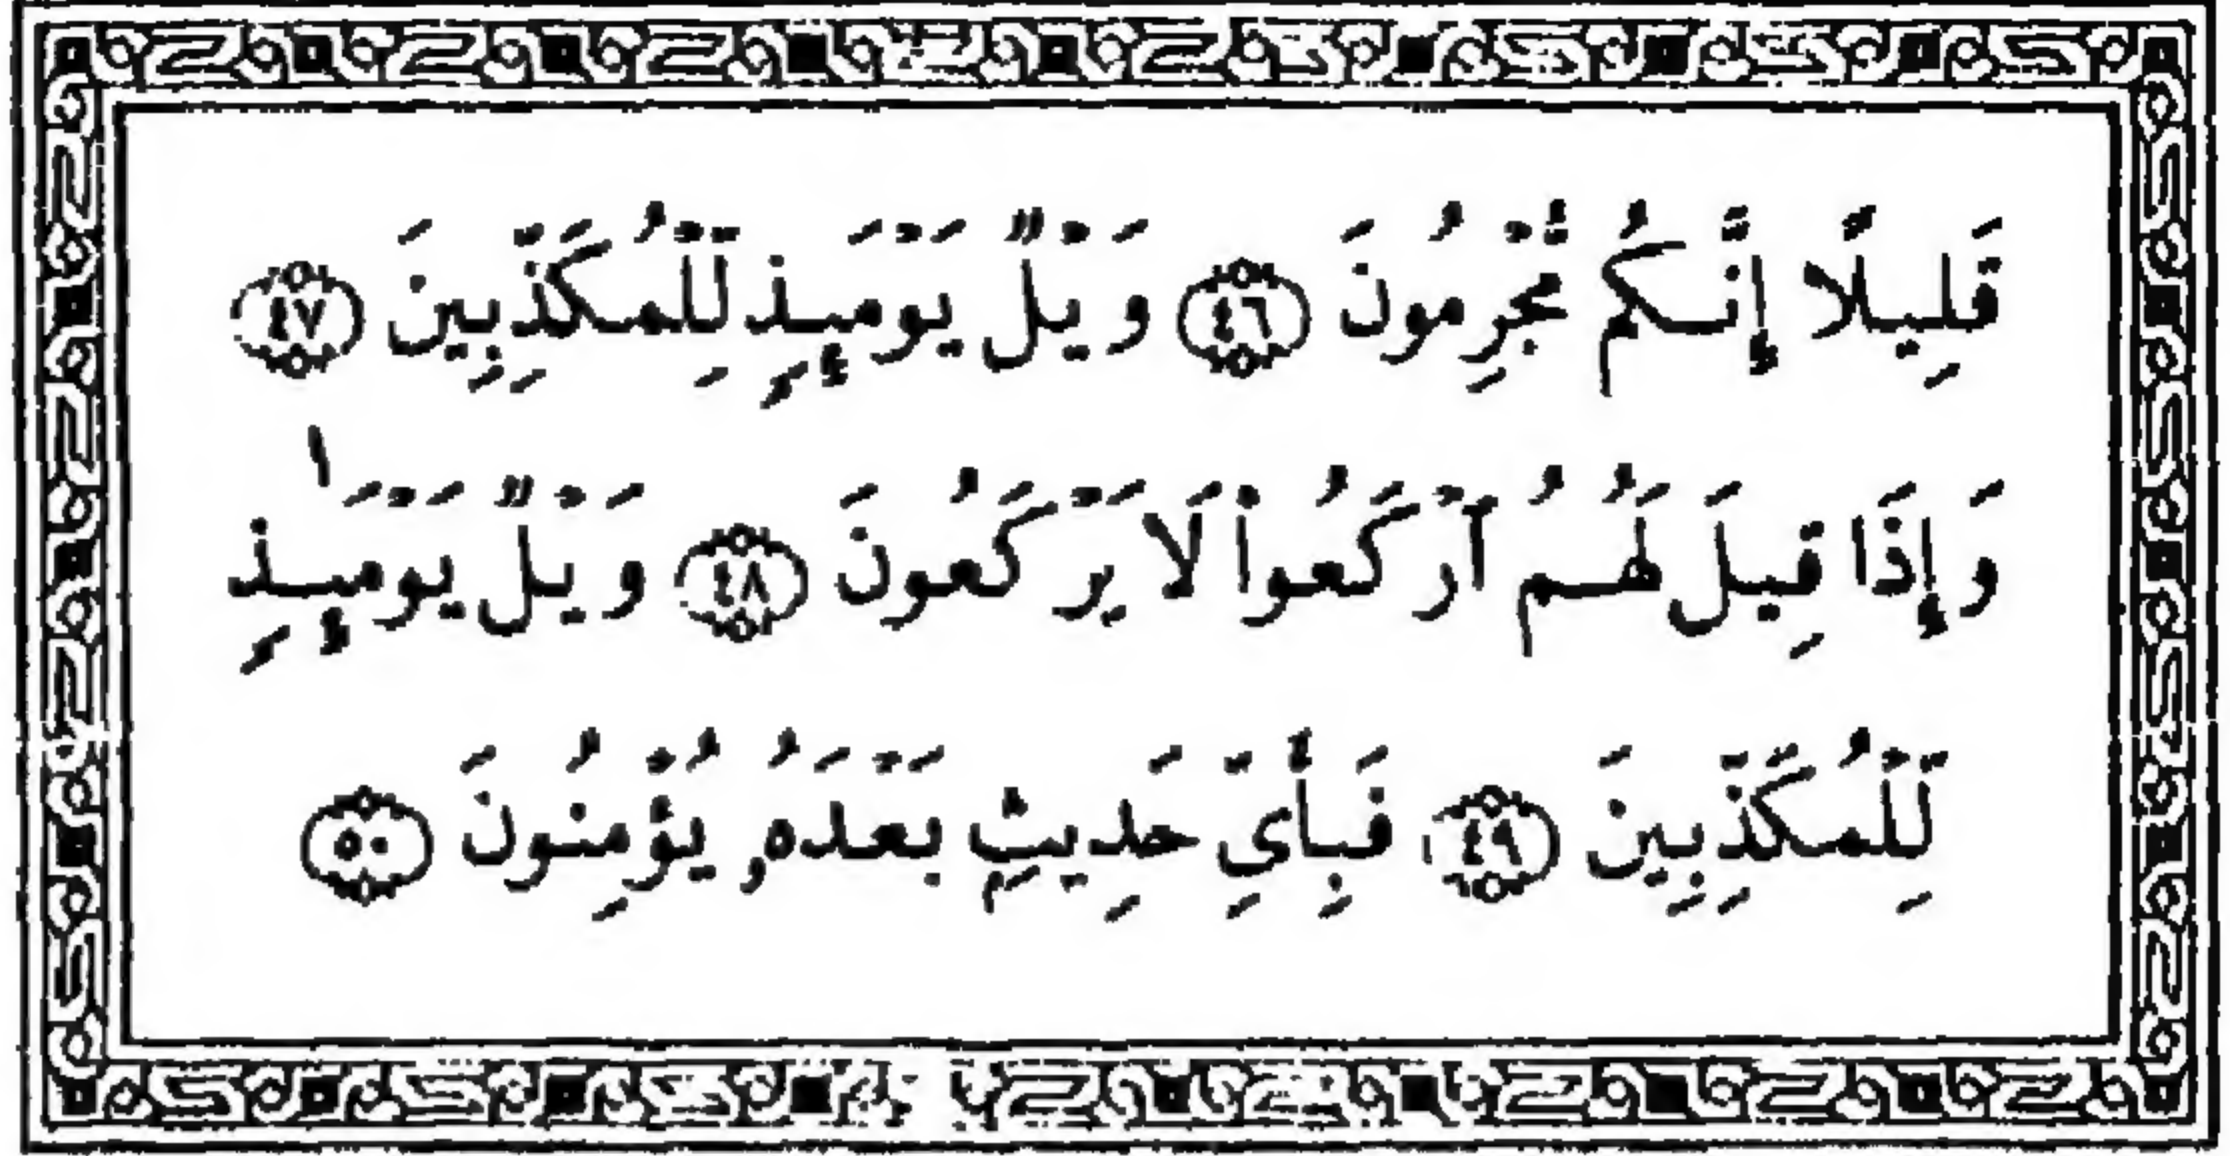 قَلِيلًا إِنَّكُم مُّجْرِمُونَ ٤٦ وَيْلٌ يَوْمَئِذٍ لِّلْمُكَذِّبِينَ ٤٧
وَإِذَا قِيلَ لَهُمُ ٱرْكَعُوا۟ لَا يَرْكَعُونَ ٤٨ وَيْلٌ يَوْمَئِذٍ
لِّلْمُكَذِّبِينَ ٤٩ فَبِأَيِّ حَدِيثٍۭ بَعْدَهُۥ يُؤْمِنُونَ ٥٠